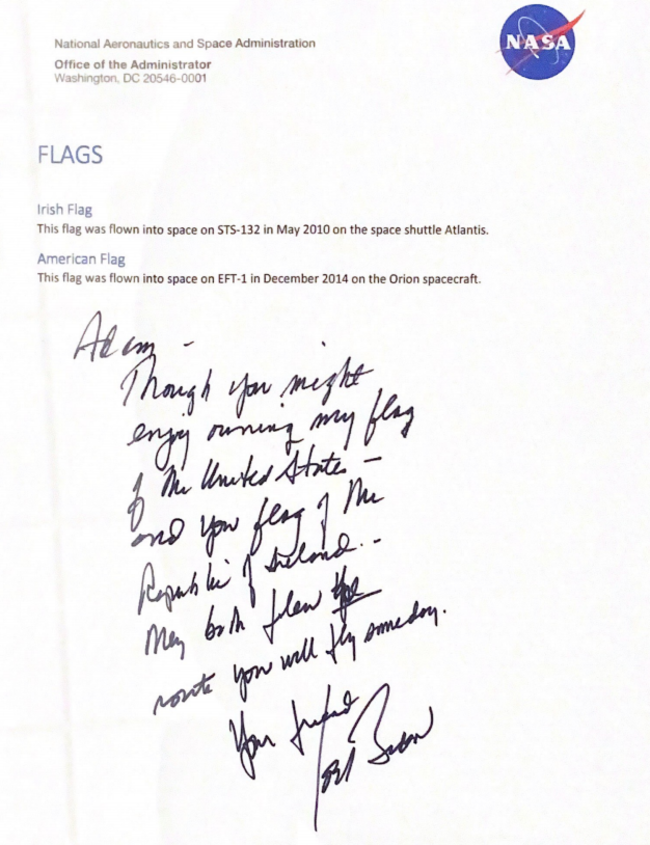 National Aeronautics and Space Administration
Office of the Administrator
Washington, DC 20546-0001
NASA
FLAGS
Irish Flag
This flag was flown into space on STS-132 in May 2010 on the space shuttle Atlantis.
American Flag
This flag was flown into space on EFT-1 in December 2014 on the Orion spacecraft.
Adam -
Though you might
enjoy owning my flag
of the United States -
and your flag of the
Republic of Ireland --
They both flew the
route you will fly someday.
Your friend